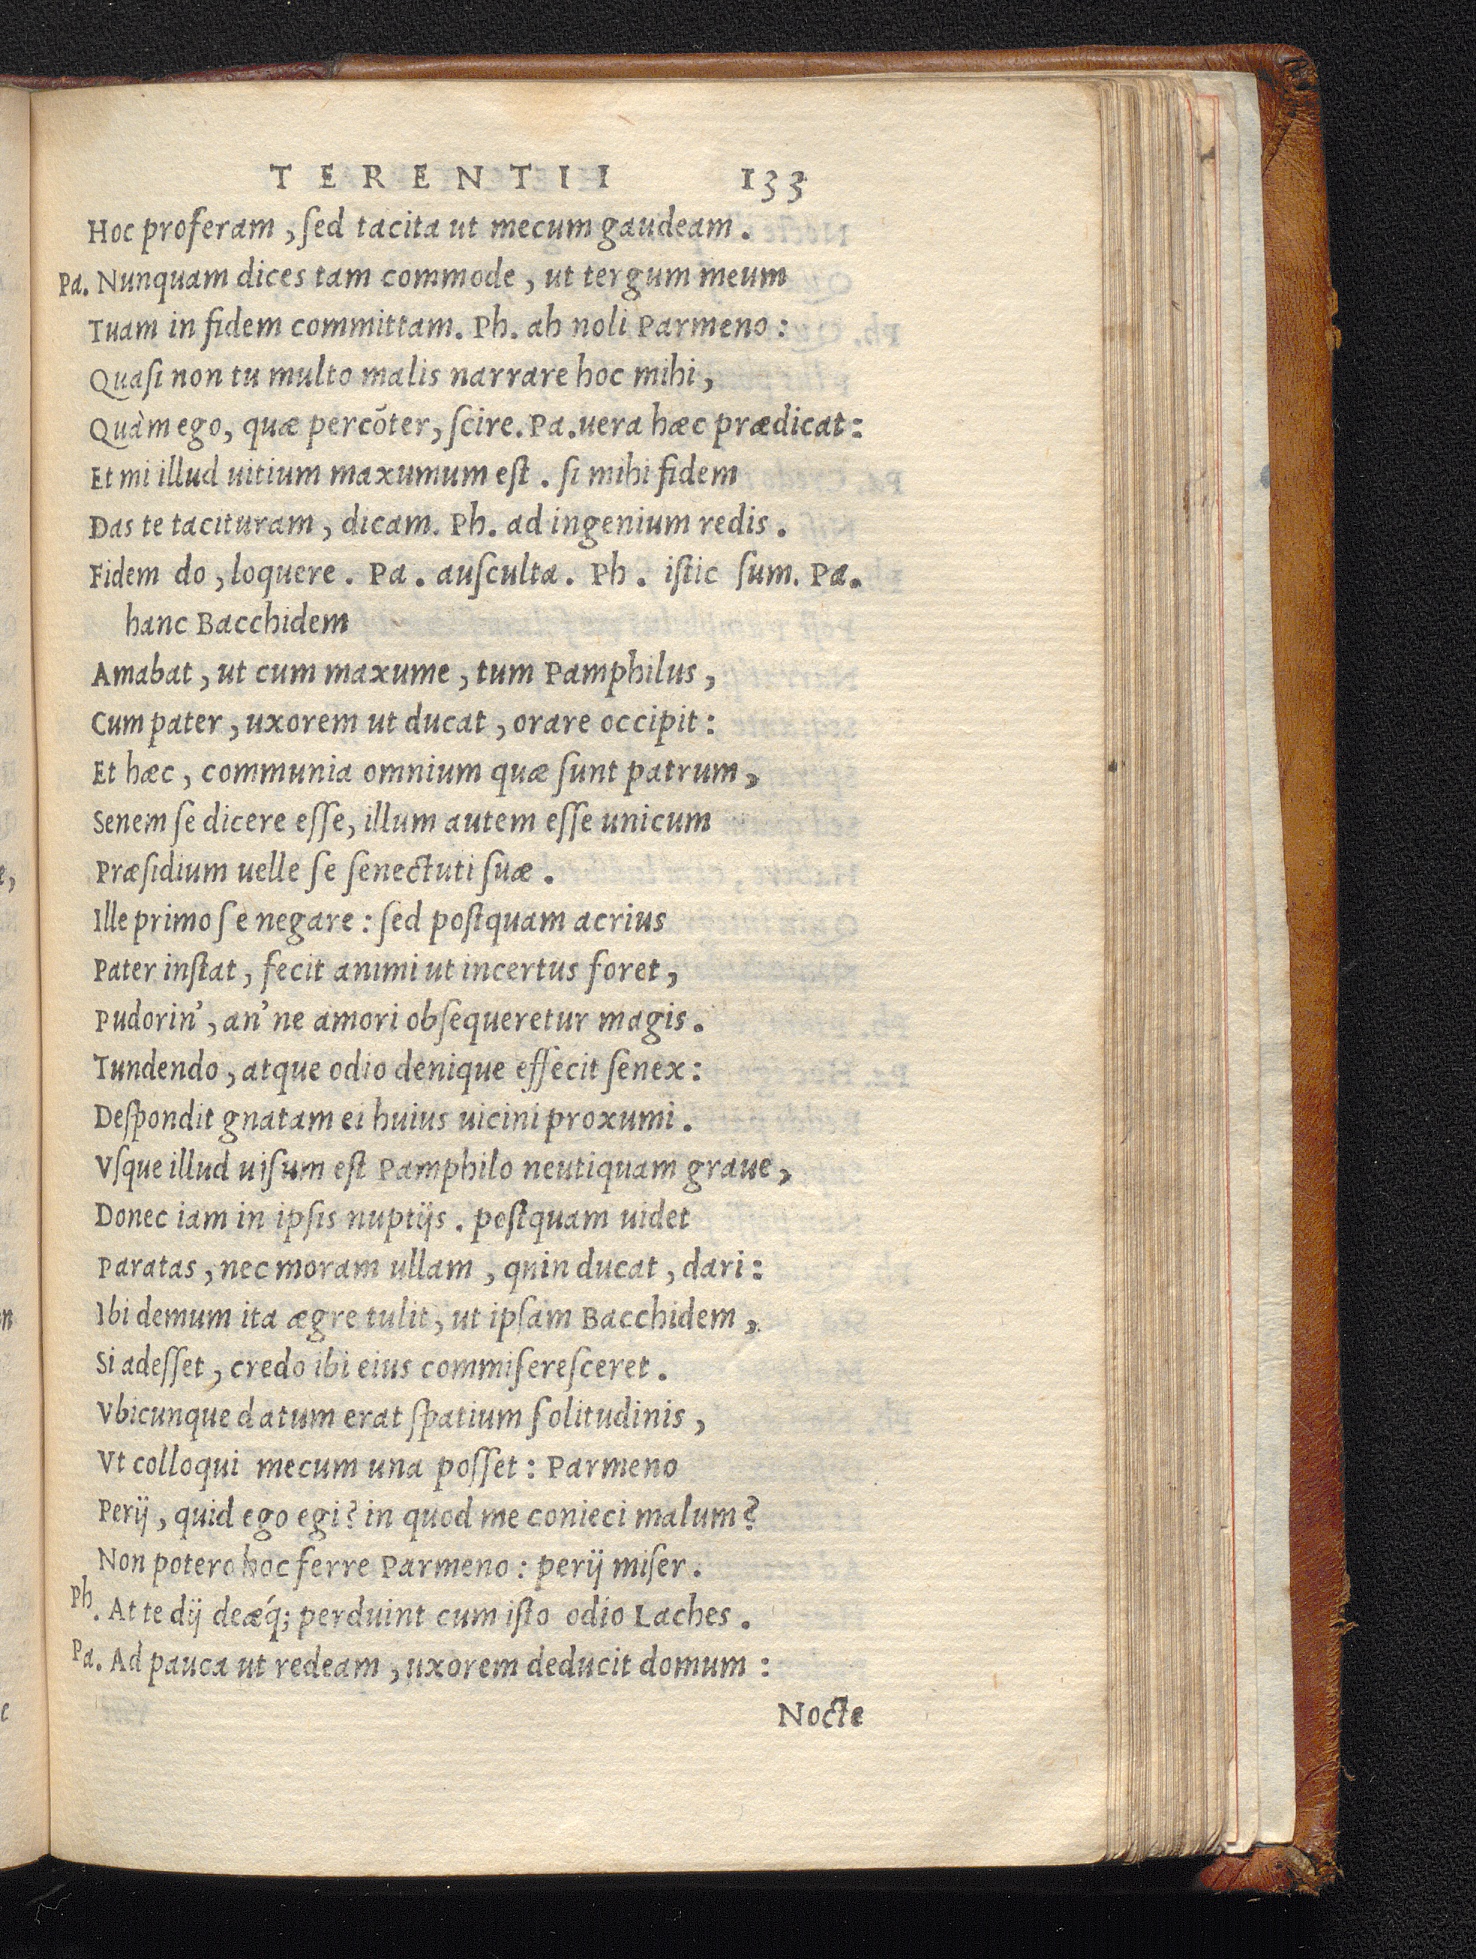 TERENTII 133
Hoc proferam, ſed tacita ut mecum gaudeam.
Pa. Nunquam dices tam commode, ut tergum meum
Tuam in fidem committam. Ph. ah noli Parmeno:
Quaſi non tu multo malis narrare hoc mihi,
Quàm ego, quæ percōter, ſcire. Pa. uera hæc prædicat:
Et mi illud uitium maxumum eſt. ſi mihi fidem
Das te tacituram, dicam. Ph. ad ingenium redis.
Fidem do, loquere. Pa. auſculta. Ph. iſtic ſum. Pa.
hanc Bacchidem
Amabat, ut cum maxume, tum Pamphilus,
Cum pater, uxorem ut ducat, orare occipit:
Et hæc, communia omnium quæ ſunt patrum,
Senem ſe dicere eſſe, illum autem eſſe unicum
Præſidium uelle ſe ſenectuti ſuæ.
Ille primo ſe negare: ſed poſtquam acrius
Pater inſtat, fecit animi ut incertus foret,
Pudorin', an' ne amori obſequeretur magis.
Tundendo, atque odio denique effecit ſenex:
Deſpondit gnatam ei huius uicini proxumi.
Vſque illud uiſum eſt Pamphilo neutiquam graue,
Donec iam in ipſis nuptijs. poſtquam uidet
Paratas, nec moram ullam, qnin ducat, dari:
Ibi demum ita ægre tulit, ut ipſam Bacchidem,
Si adeſſet, credo ibi eius commiſereſceret.
Vbicunque datum erat ſpatium ſolitudinis,
Vt colloqui mecum una poſſet: Parmeno
Perij, quid ego egi? in quod me conieci malum?
Non potero hoc ferre Parmeno: perij miſer.
Ph. At te dij deæq́; perduint cum iſto odio Laches.
Pa. Ad pauca ut redeam, uxorem deducit domum:
Nocte